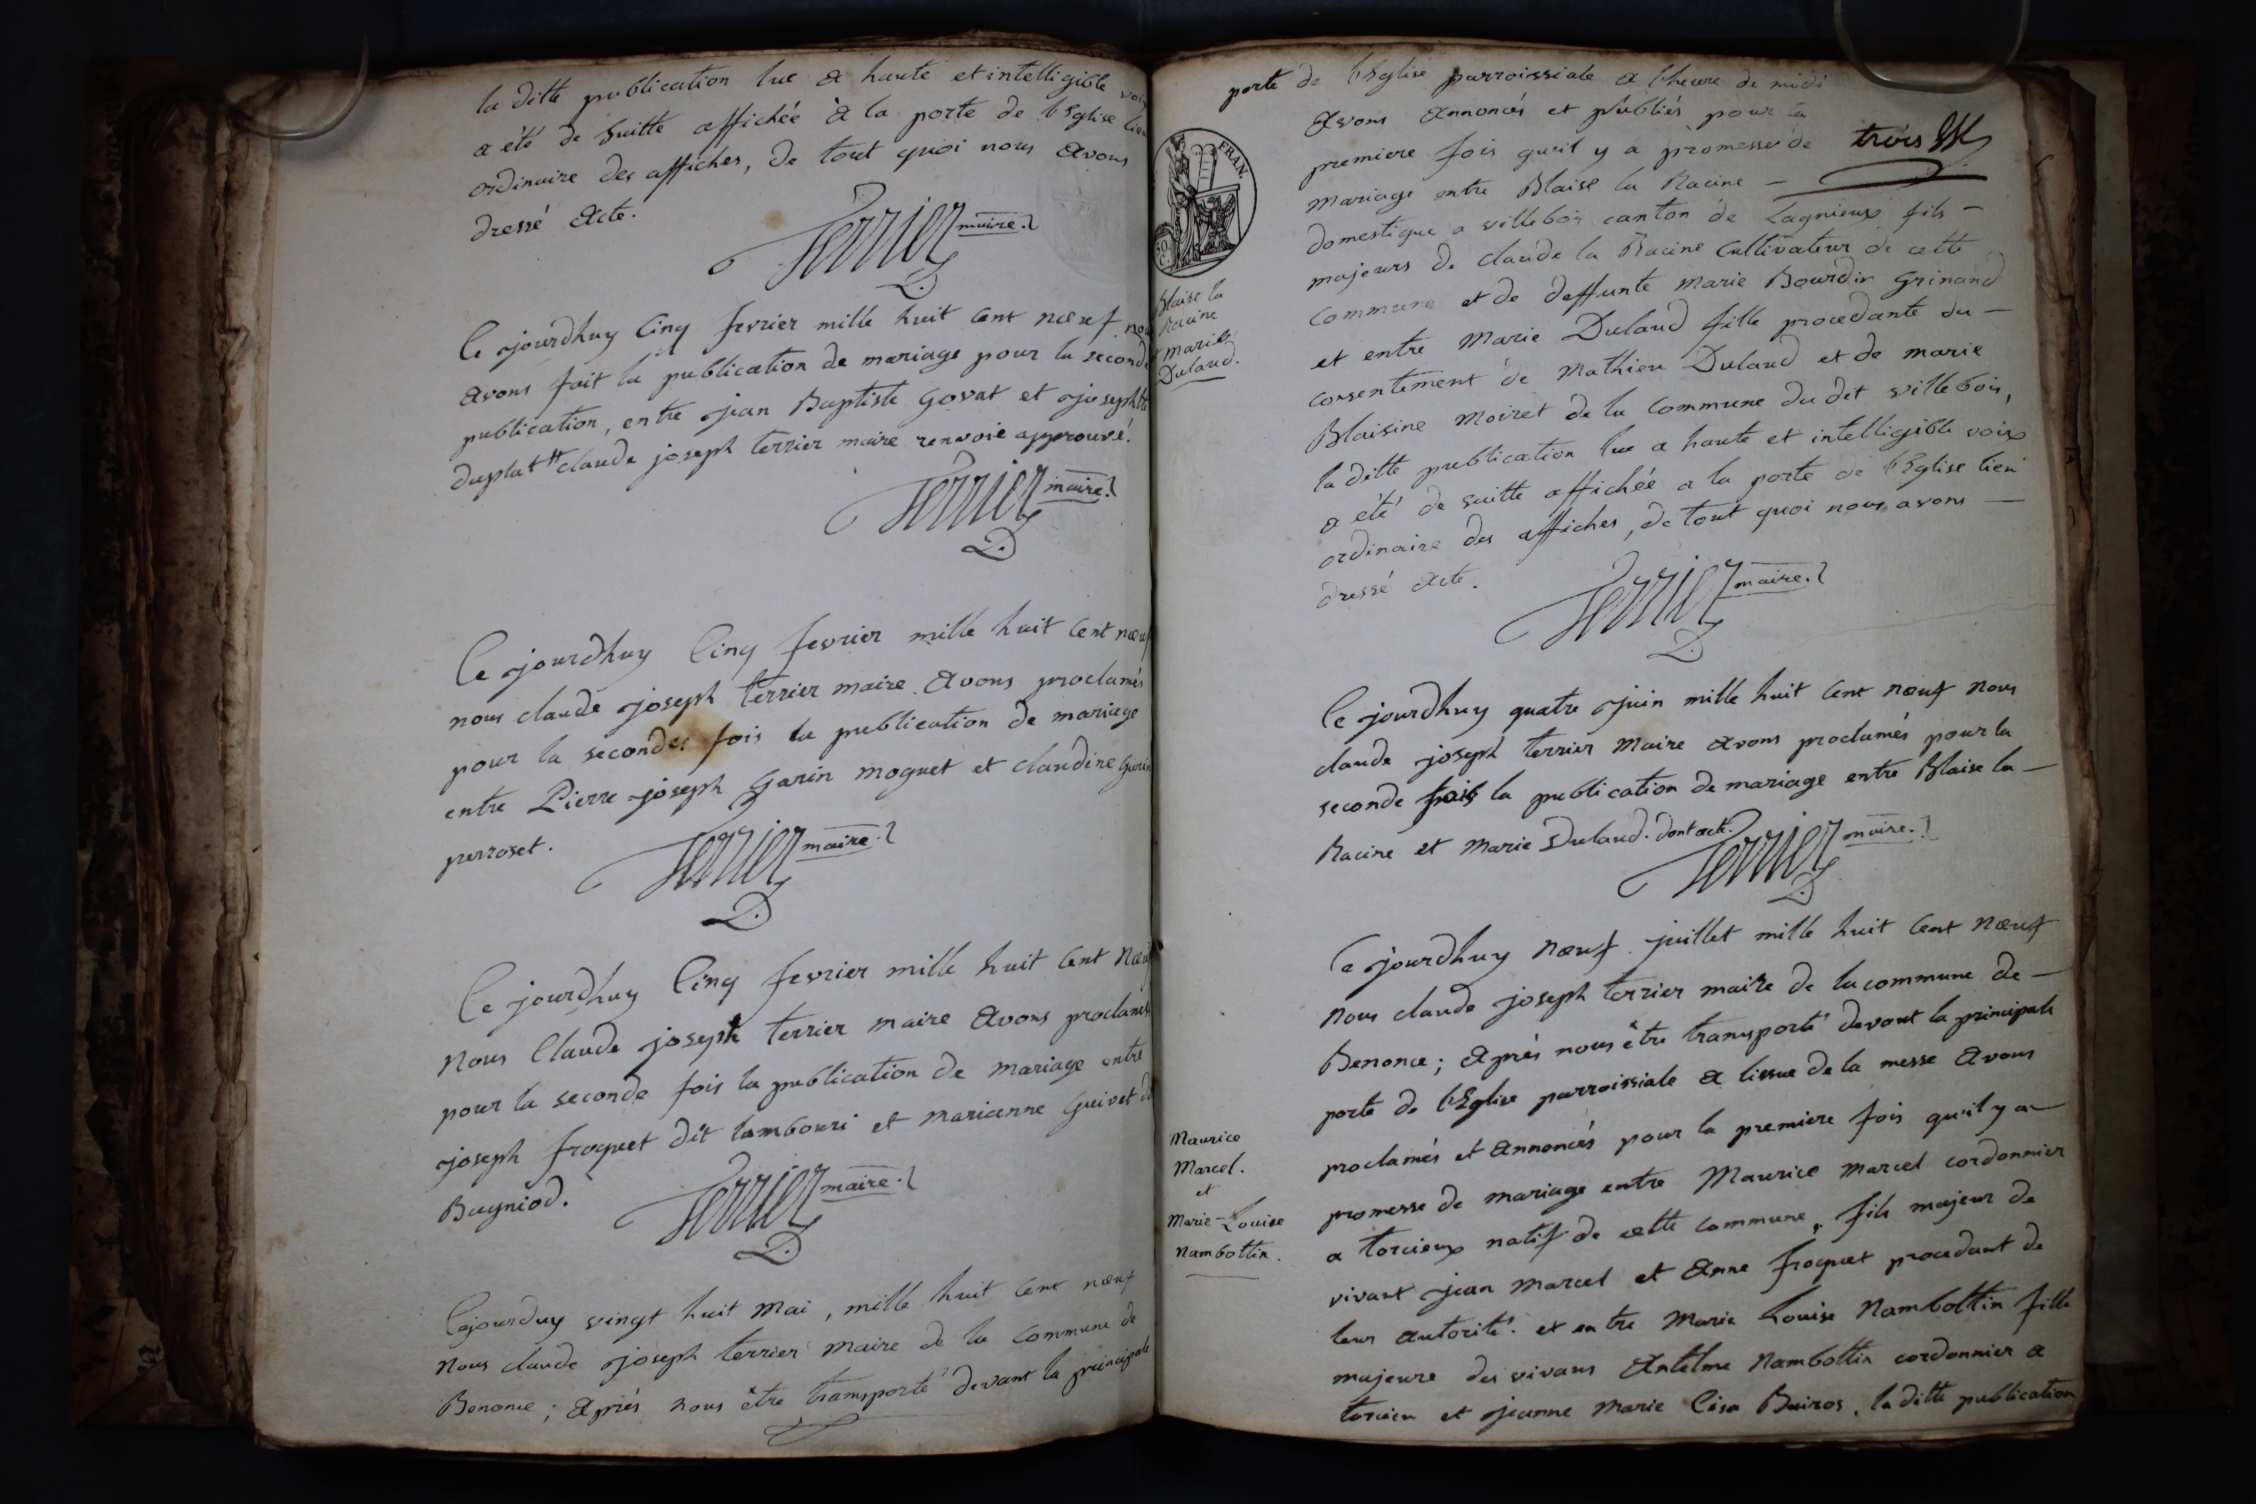 la ditte publication lue a haute et intelligible voix
a été de suitte affichée a la porte de l'Eglise lieu
ordinaire des affiches, de tout quoi nous avons
dressé acte.
Terrier maire.
Ce jourdhuy Cinq fevrier mille huit cent nœuf nous
avons fait la publication de mariage pour la seconde
publication, entre jean Baptiste Govat et josephte
duplat # claude joseph terrier maire renvoie approuvé.
Terrier maire.
Ce jourdhuy Cinq fevrier mille huit cent nœuf
nous claude joseph terrier maire avons proclamés
pour la secondes fois la publication de mariage
entre Pierre joseph Garin moguet et claudine Garin
perroset.
Terrier maire.
Ce jourdhuy Cinq fevrier mille huit cent nœuf
nous Claude joseph terrier maire avons proclamés
pour la seconde fois la publication de mariage entre
joseph froquet dit lambouri et marianne Guivet dit
Bugniod.
Terrier maire.
Cejourduy vingt huit mai, mille huit cent nœuf
nous claude joseph terrier maire de la commune de
Benonce; après nous être transporté devant la principale
porte de l'Eglise parroissiale a l'heure de midi
avons annoncés et publiés pour la
premiere fois qu'il y a promesse de
trois
mariage entre Blaise la Racine —
domestique a villebois canton de Lagnieux fils —
majeurs de claude la Racine Cultivateur de cette
commune et de deffunte marie Bourdin Grinand
et entre Marie Dulaud fille procedante du —
consentement de Mathieu Dulaud et de marie
Blaisine moiret de la commune du dit villebois,
la ditte publication lue a haute et intelligible voix
a été de suitte affichée a la porte de l'Eglise lieu
ordinaire des affiches, de tout quoi nous avons —
dressé acte.
Terrier maire.
FRAN.
50.
C.
Blaise la
Racine
marie
Dulaud.
Ce jourdhuy quatre juin mille huit cent nœuf nous
claude joseph terrier maire avons proclamés pour la
seconde fois la publication de mariage entre Blaise la —
Racine et marie Dulaud. dont acte.
Terrier maire.
Ce jourdhuy nœuf juillet mille huit cent nœuf
nous claude joseph terrier maire de la commune de —
Benonce; après nous être transporté devant la principale
porte de l'Eglise parroissiale a lissue de la messe avons
proclamés et annoncés pour la premiere fois qu'il y a —
promesse de mariage entre Maurice marcel cordonnier
a torcieux natif de cette commune, fils majeur de
vivant jean marcel et anne froquet procedant de
leur autorité. et entre Marie Louise Nambottin fille
majeure des vivans Antelme Nambottin cordonnier a
torcieu et jeanne marie Buiros, la ditte publication
Maurice
Marcel.
et
Marie-Louise
Nambottin.